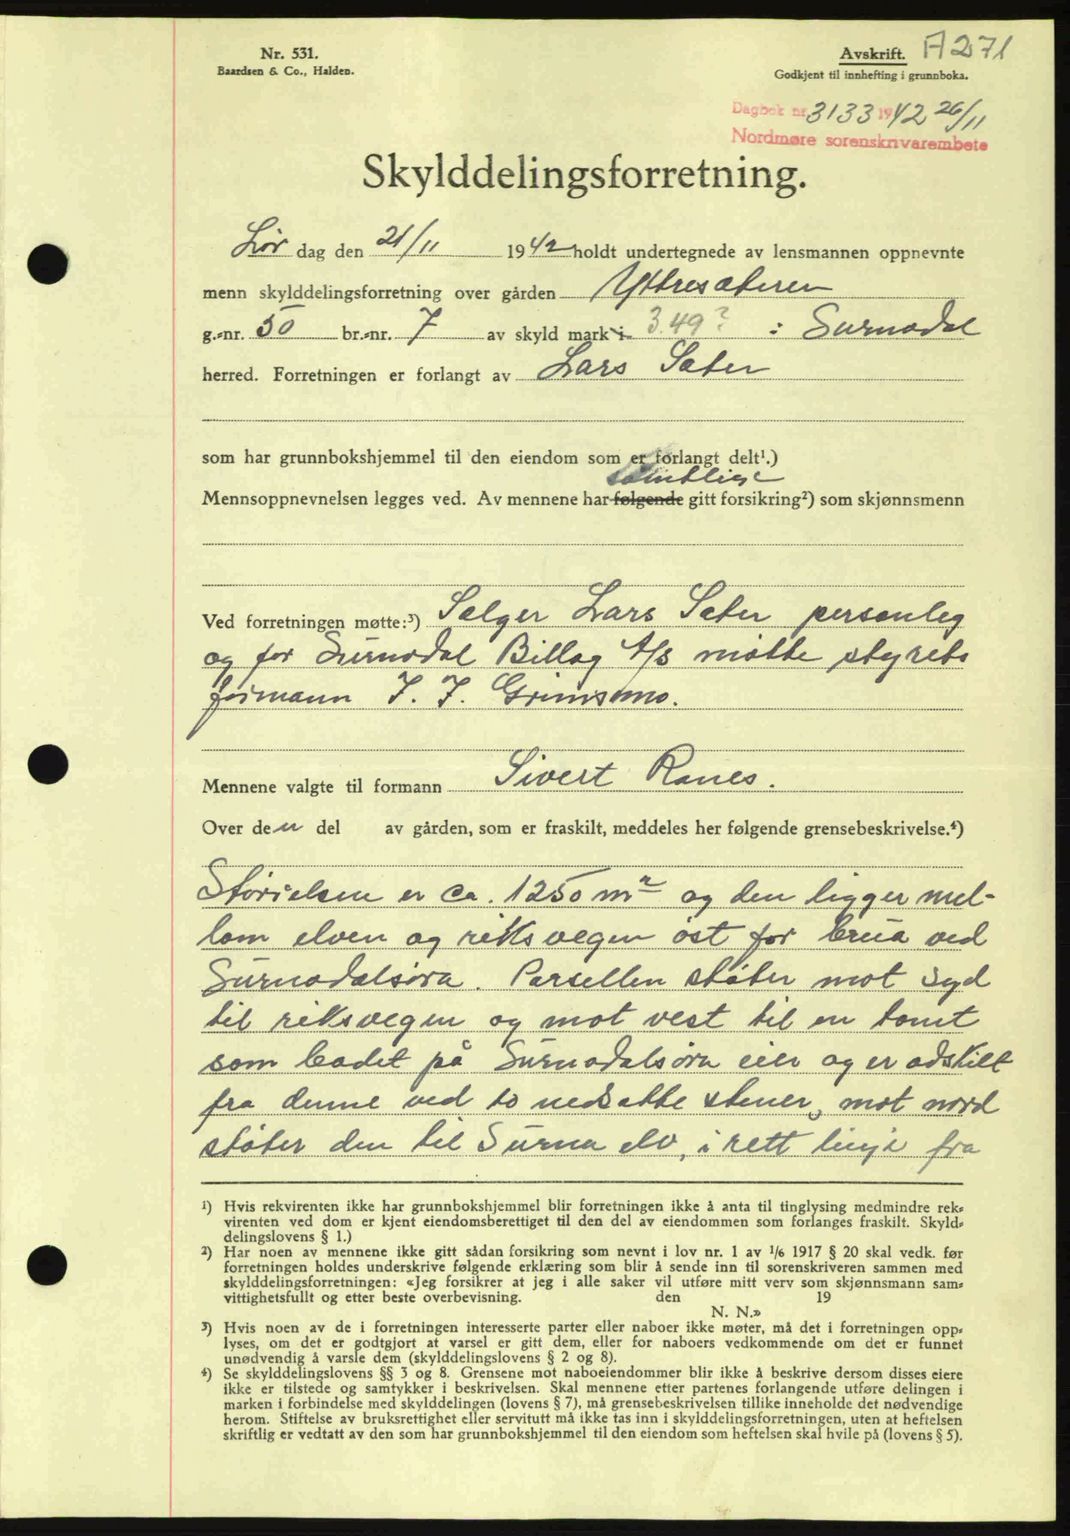 Nr. 531.
Baardsen & Co., Halden.
Avskrift. A 271
Godkjent til innhefting i grunnboka.
Dagbok nr. 3133 1942 26/11
Nordmøre sorenskrivarembete
Skylddelingsforretning.
Lør dag den 21/11 1942 holdt undertegnede av lensmannen oppnevnte
menn skylddelingsforretning over gården Yttresæteren
g.=nr. 50 br.=nr. 7 av skyld mark i 3.49? : Surnadal
herred. Forretningen er forlangt av Lars Sæter
som har grunnbokshjemmel til den eiendom som er forlangt delt¹.)
samtlige
Mennsoppnevnelsen legges ved. Av mennene har følgende gitt forsikring²) som skjønnsmenn
Ved forretningen møtte:³) Selger Lars Sæter personleg
og for Surnadal Billag A/S møtte styrets
formann J. J. Grimsmo.
Mennene valgte til formann Sivert Ranes.
Over den del av gården, som er fraskilt, meddeles her følgende grensebeskrivelse.⁴)
Størrelsen er ca. 1250 m² og den ligger mel-
lom elven og riksvegen øst for brua ved
Surnadalsøra. Parsellen støter mot syd
til riksvegen og mot vest til en tomt
som badet på Surnadalsøra eier og er adskilt
fra denne ved to nedsatte stener, mot nord
støter den til Surna elv, i rett linje fra
¹) Hvis rekvirenten ikke har grunnbokshjemmel blir forretningen ikke å anta til tinglysing medmindre rek=
virenten ved dom er kjent eiendomsberettiget til den del av eiendommen som forlanges fraskilt. Skyld=
delingslovens § 1.)
²) Har noen av mennene ikke gitt sådan forsikring som nevnt i lov nr. 1 av 1/6 1917 § 20 skal vedk. før
forretningen holdes underskrive følgende erklæring som blir å sende inn til sorenskriveren sammen med
skylddelingsforretningen: «Jeg forsikrer at jeg i alle saker vil utføre mitt verv som skjønnsmann sam=
vittighetsfullt og etter beste overbevisning. den 19
N. N.»
³) Hvis noen av de i forretningen interesserte parter eller naboer ikke møter, må det i forretningen opp=
lyses, om det er godtgjort at varsel er gitt dem, eller for naboers vedkommende om det er funnet
unødvendig å varsle dem (skylddelingslovens § 2 og 8).
⁴) Se skylddelingslovens §§ 3 og 8. Grensene mot naboeiendommer blir ikke å beskrive dersom disses eiere
ikke er tilstede og samtykker i beskrivelsen. Skal mennene etter partenes forlangende utføre delingen i
marken i forbindelse med skylddelingen (lovens § 7), må grensebeskrivelsen tillike inneholde det nødvendige
herom. Stiftelse av bruksrettighet eller servitutt må ikke tas inn i skylddelingsforretningen, uten at heftelsen
skriftlig er vedtatt av den som har grunnbokshjemmel til den eiendom som heftelsen skal hvile på (lovens § 5).